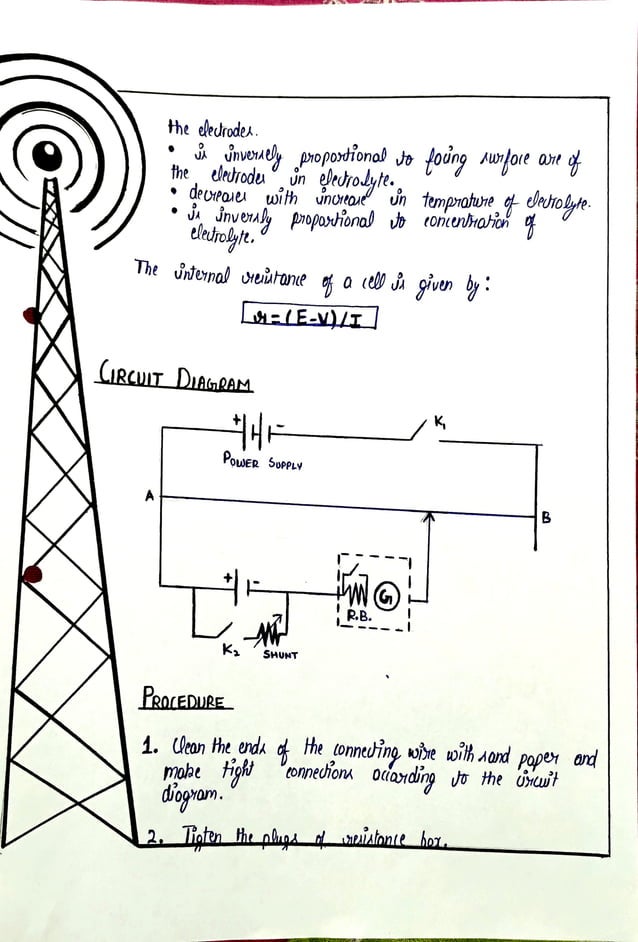 the electrodes.
• is inversely proportional to facing surface are of
the electrodes in electrolyte.
• decreases with increase in temprature of electrolyte.
• is inversly proportional to concentration of
electrolyte.
The internal resistance of a cell is given by:
r=(E-V)/I
CIRCUIT DIAGRAM
+ - K₁
POWER SUPPLY
A
B
+ -
G
R.B.
K₂ SHUNT
PROCEDURE
1. Clean the ends of the connecting wire with sand paper and
make tight connections accarding to the circuit
diagram.
2. Tigten the plugs of resistance box.